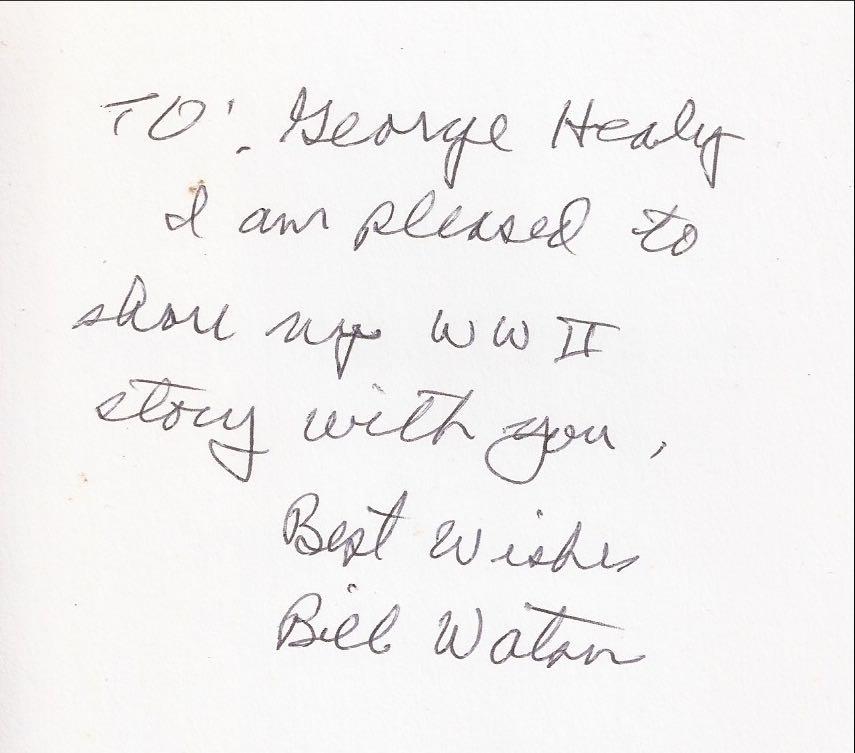 TO: George Healy
I am pleased to
share my WW II
story with you.
Best Wishes
Bill Watson